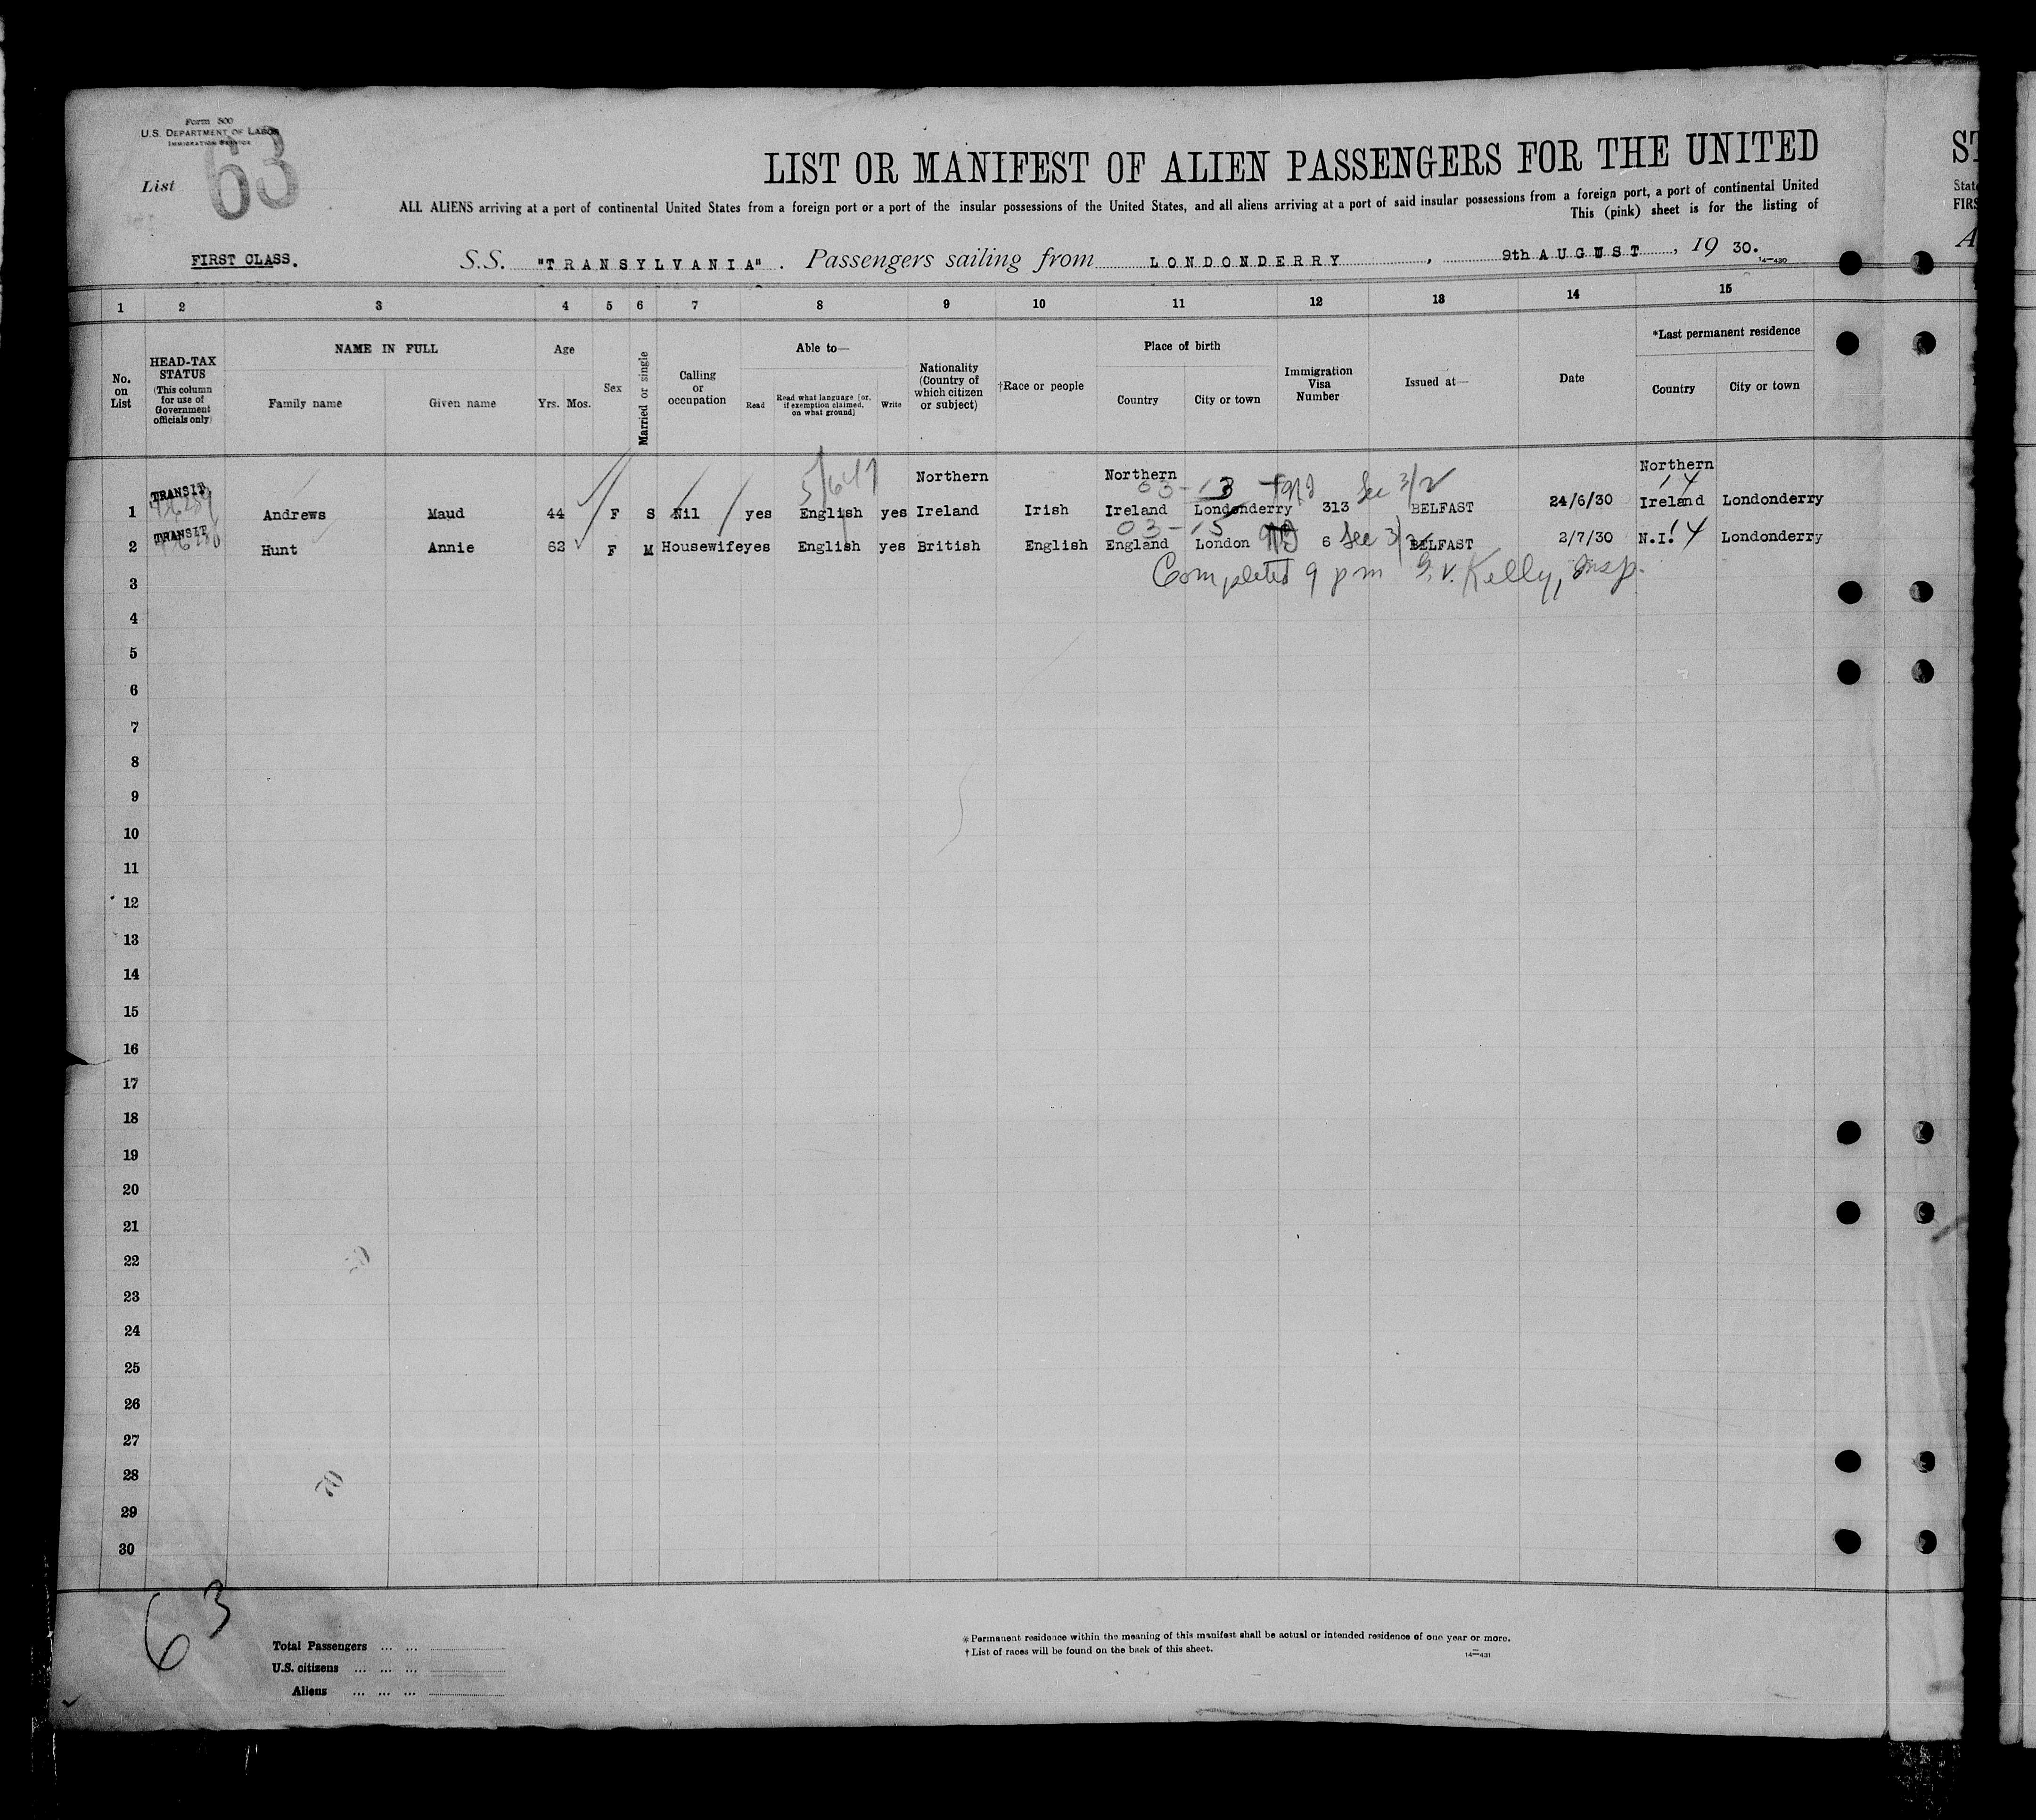 Form 500
U.S. DEPARTMENT OF LABOR
IMMIGRATION SERVICE
63
List
LIST OR MANIFEST OF ALIEN PASSENGERS FOR THE UNITED
ST
ALL ALIENS arriving at a port of continental United States from a foreign port or a port of the insular possessions of the United States, and all aliens arriving at a port of said insular possessions from a foreign port, a port of continental United
State
This (pink) sheet is for the listing of
FIRS
FIRST CLASS.
S.S. "TRANSYLVANIA". Passengers sailing from LONDONDERRY, 9th AUGUST, 19 30.
A
14—430
1 2 3 4 5 6 7 8 9 10 11 12 13 14 15
No. on List
HEAD-TAX STATUS (This column for use of Government officials only)
NAME IN FULL
Family name Given name
Age
Yrs. Mos.
Sex
Married or single
Calling or occupation
Able to—
Read
Read what language [or, if exemption claimed, on what ground]
Write
Nationality (Country of which citizen or subject)
†Race or people
Place of birth
Country City or town
Immigration Visa Number
Issued at—
Date
*Last permanent residence
Country City or town
5/647
Northern Northern Northern
03-13 See 3/2 14
1 TRANSIT Andrews Maud 44 F S Nil yes English yes Ireland Irish Ireland Londonderry 313 BELFAST 24/6/30 Ireland Londonderry
03-15
2 TRANSIT Hunt Annie 62 F M Housewife yes English yes British English England London 6 See 3/2 BELFAST 2/7/30 N.I. 4 Londonderry
3 Completed 9 pm G. V. Kelly, Insp.
4
5
6
7
8
9
10
11
12
13
14
15
16
17
18
19
20
21
22
23
24
25
26
27
28
29
30
63
Total Passengers ... ...
U.S. citizens ... ... ...
Aliens ... ... ...
*Permanent residence within the meaning of this manifest shall be actual or intended residence of one year or more.
†List of races will be found on the back of this sheet.
14—431